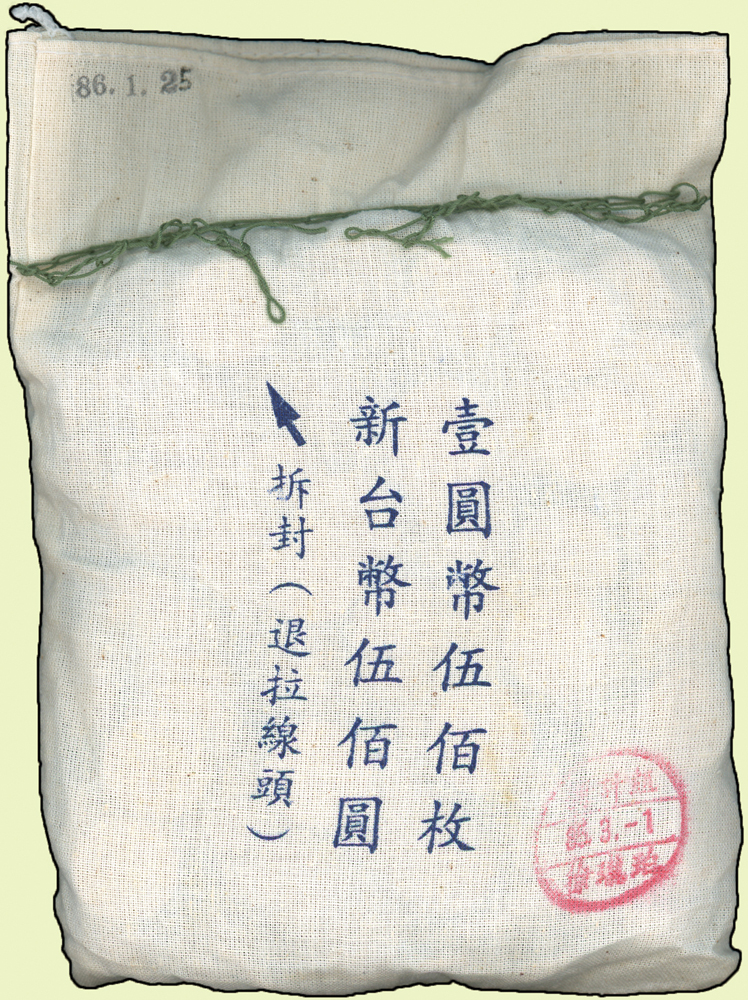 86. 1. 25
壹圓幣伍佰枚
新台幣伍佰圓
拆封（退拉線頭）
計組
86.3.-1